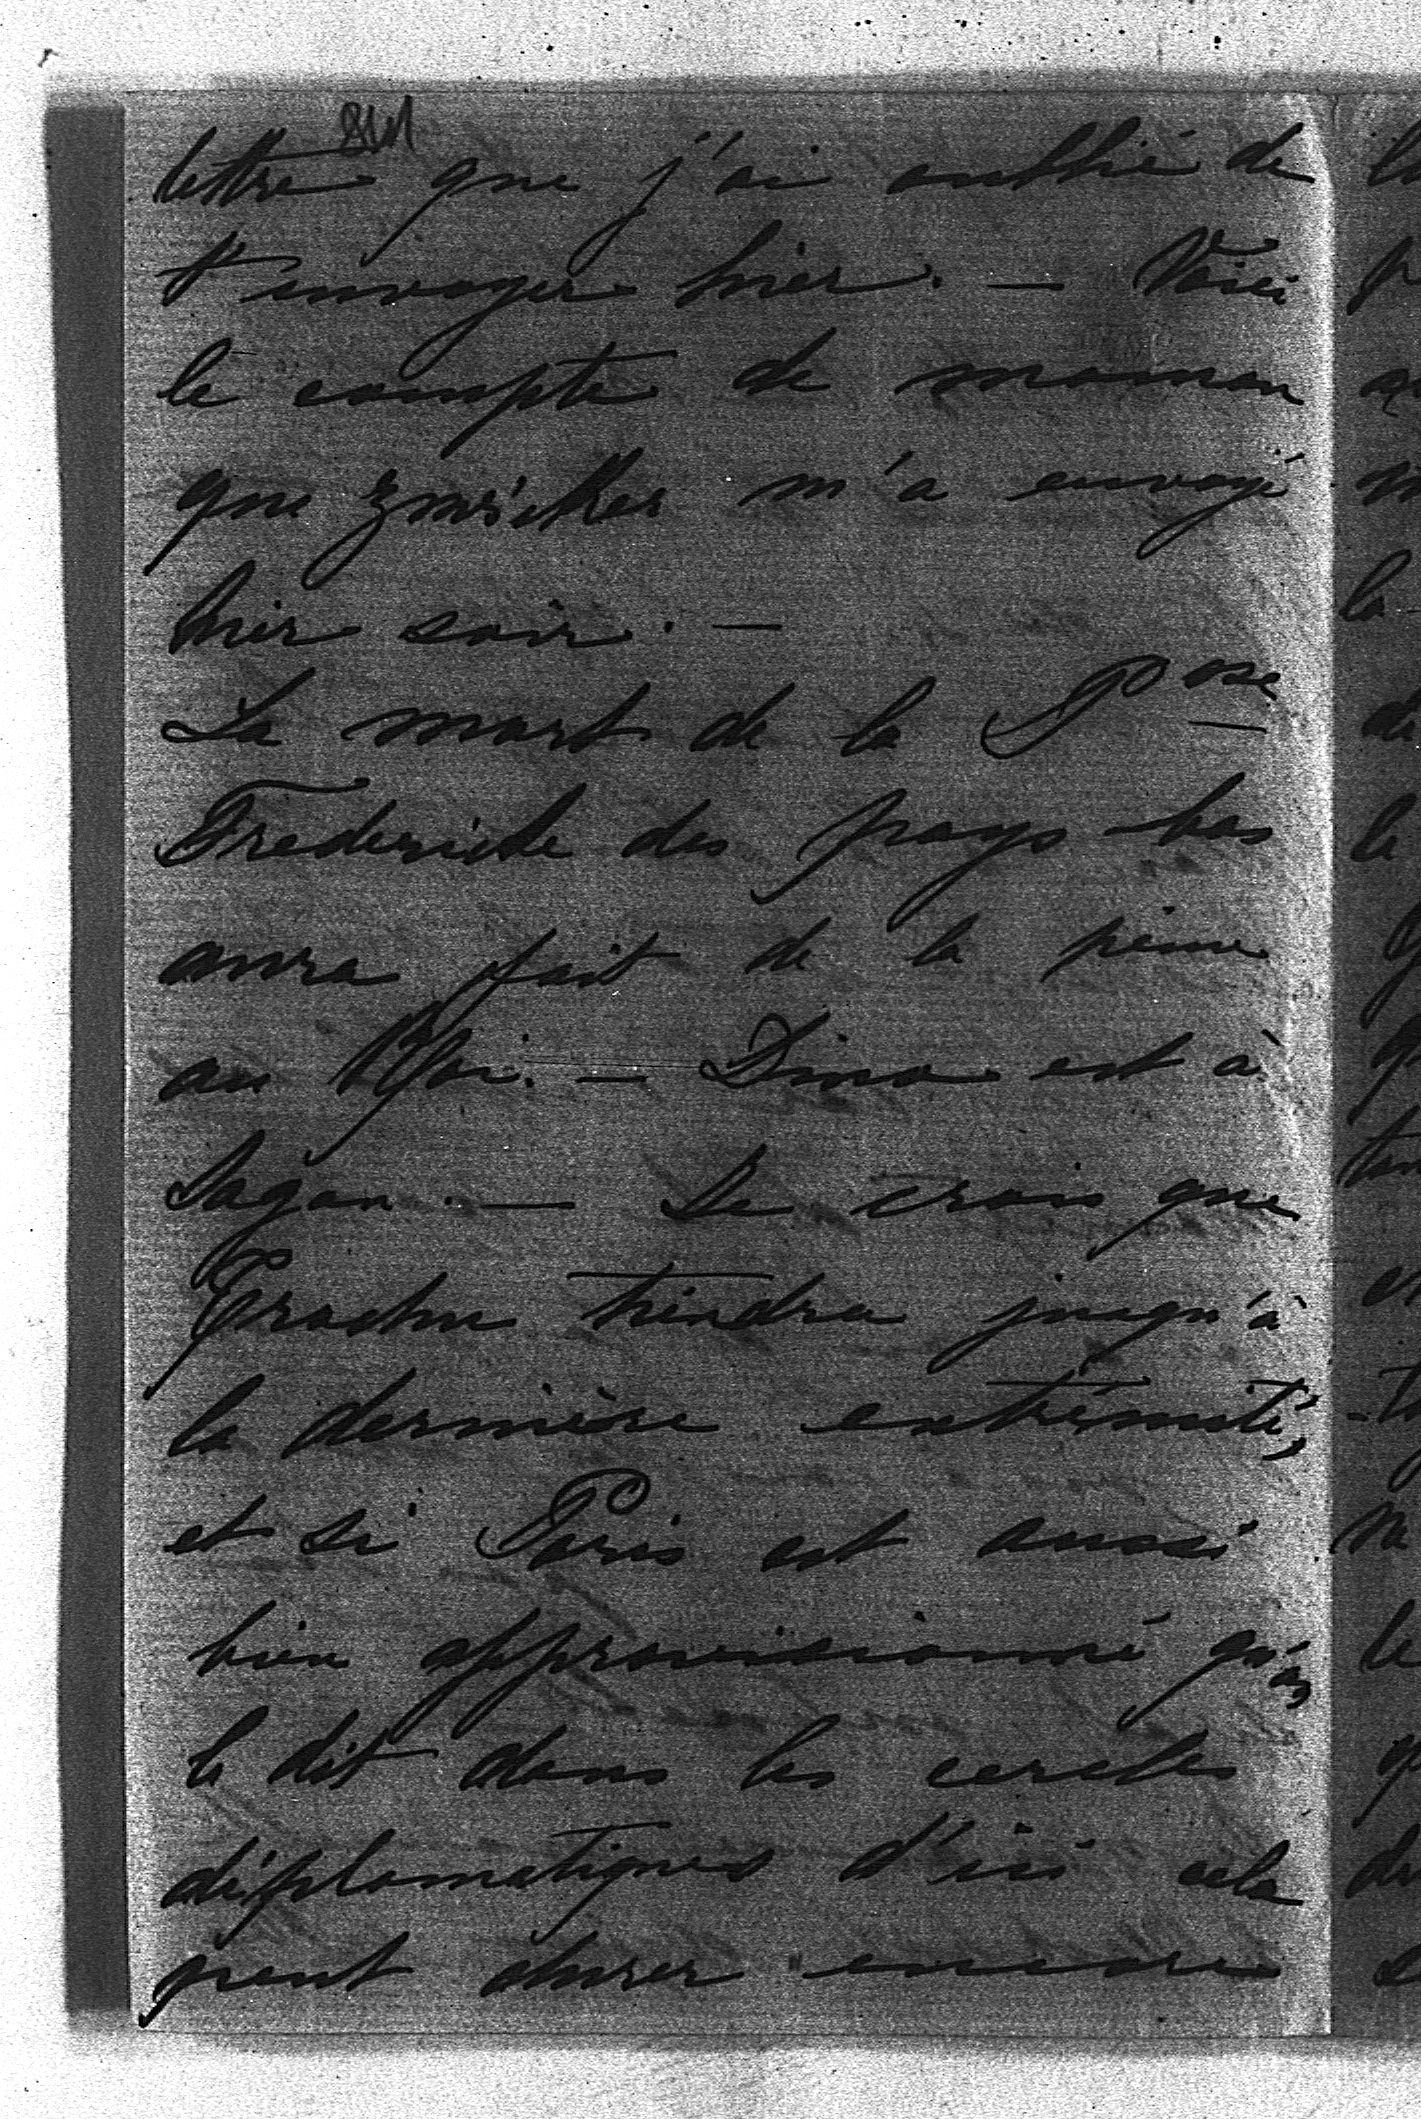 lettre que j'ai oublié de
t'envoyer hier. — Voici
le compte de maman
que m'a envoyé
hier soir. —
La mort de la Psse
Frédericke des pays-bas
aura fait de la peine
au Roi. — Dino est à
Sagan. — Je crois que
Trochu tiendra jusqu'à
la dernière extrémité,
et si Paris est aussi
bien approvisionné qu'on
le dit dans les cercles
diplomatiques d'ici cela
peut durer encore